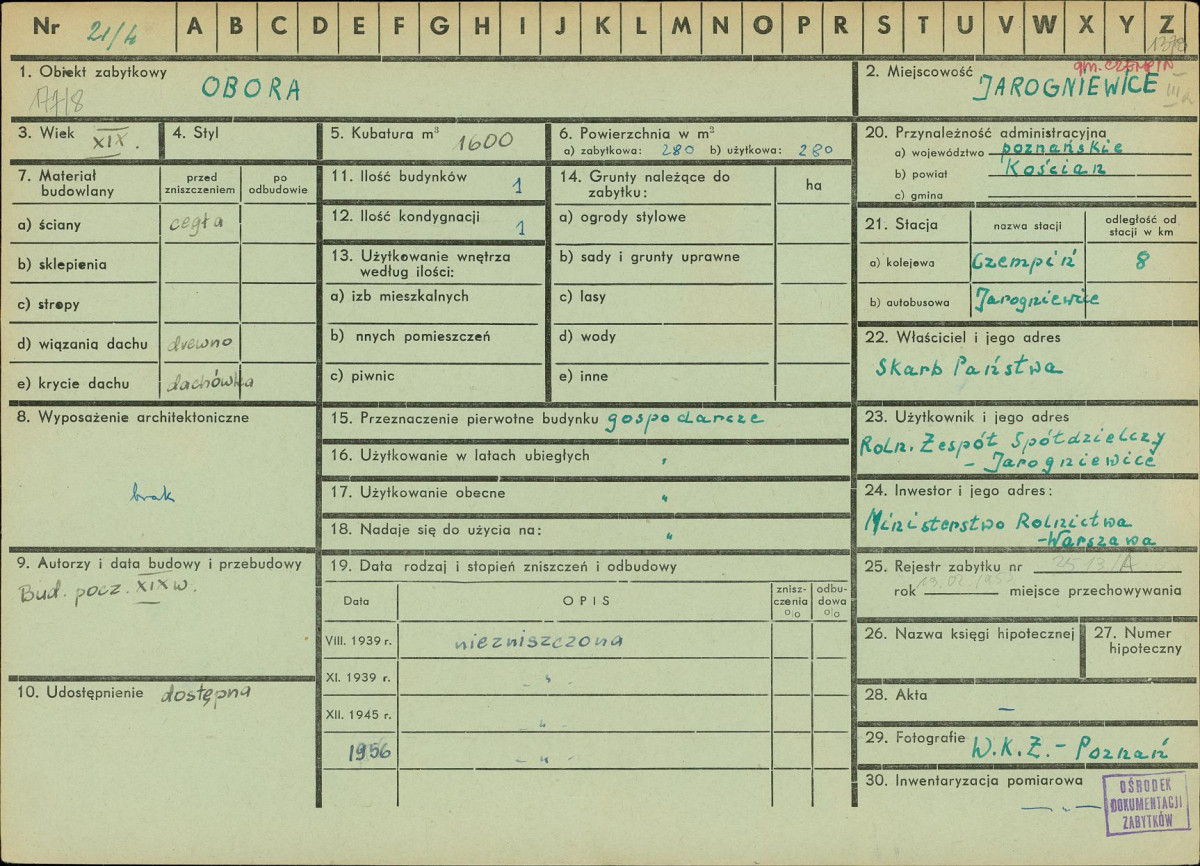 Nr 21/4 A B C D E F G H I J K L M N O P R S T U V W X Y Z
1. Obiekt zabytkowy OBORA
177/8
2. Miejscowość JAROGNIEWICE
gm. CZEMPIŃ
3. Wiek XIX.
4. Styl
5. Kubatura m³ 1600
6. Powierzchnia w m²
a) zabytkowa: 280 b) użytkowa: 280
7. Materiał budowlany
przed zniszczeniem
po odbudowie
a) ściany cegła
b) sklepienia
c) stropy
d) wiązania dachu drewno
e) krycie dachu dachówka
8. Wyposażenie architektoniczne
brak
9. Autorzy i data budowy i przebudowy
Bud. pocz. XIX w.
10. Udostępnienie dostępna
11. Ilość budynków 1
12. Ilość kondygnacji 1
13. Użytkowanie wnętrza
według ilości:
a) izb mieszkalnych
b) nnych pomieszczeń
c) piwnic
14. Grunty należące do
zabytku:
ha
a) ogrody stylowe
b) sady i grunty uprawne
c) lasy
d) wody
e) inne
15. Przeznaczenie pierwotne budynku gospodarcze
16. Użytkowanie w latach ubiegłych "
17. Użytkowanie obecne "
18. Nadaje się do użycia na: "
19. Data rodzaj i stopień zniszczeń i odbudowy
Data OPIS
znisz-
czenia
o|o
odbu-
dowa
o|o
VIII. 1939 r. niezniszczona
XI. 1939 r. - " -
XII. 1945 r. - " -
1956 - " -
20. Przynależność administracyjna
a) województwo poznańskie
b) powiat Kościan
c) gmina
21. Stacja
nazwa stacji
odległość od
stacji w km
a) kolejowa Czempiń 8
b) autobusowa Jarogniewice
22. Właściciel i jego adres
Skarb Państwa
23. Użytkownik i jego adres
Roln. Zespół Spółdzielczy
- Jarogniewice
24. Inwestor i jego adres:
Ministerstwo Rolnictwa
-Warszawa
25. Rejestr zabytku nr 2513/A
rok miejsce przechowywania
26. Nazwa księgi hipotecznej
27. Numer
hipoteczny
28. Akta
—
29. Fotografie W.K.Z. - Poznań
30. Inwentaryzacja pomiarowa
— " —
OŚRODEK
DOKUMENTACJI
ZABYTKÓW